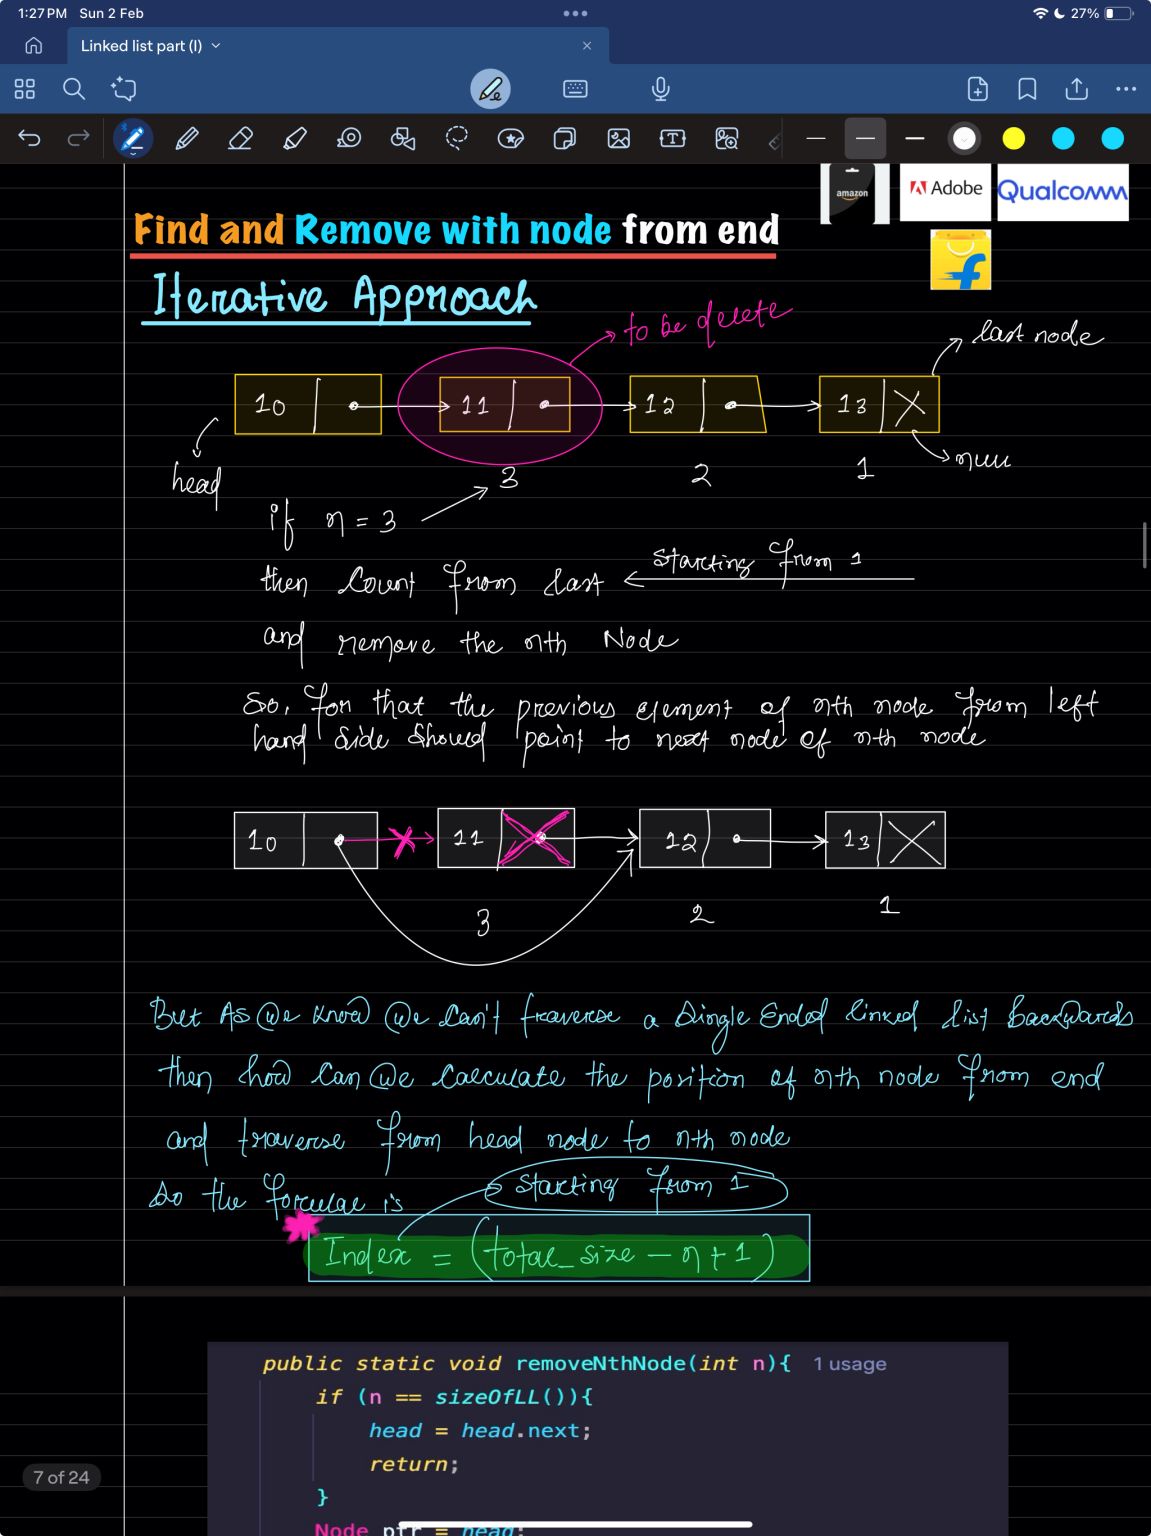 1:27 PM Sun 2 Feb
27%
Linked list part (I)
amazon
Adobe
Qualcomm
Find and Remove with node from end
Iterative Approach
to be delete
last node
10 11 12 13
head
3 2 1
null
if n = 3
starting from 1
then Count from last
and remove the nth Node
So, for that the previous element of nth node from left
hand side should point to next node of nth node
10 11 12 13
3 2 1
But As We know We Can't traverse a Single Ended linked list Backwards
then how Can We Calculate the position of nth node from end
and traverse from head node to nth node
So the is
starting from 1
Index = (total_size - n + 1)
public static void removeNthNode(int n){ 1 usage
if (n == sizeOfLL()){
head = head.next;
return;
}
Node ptr = head;
7 of 24